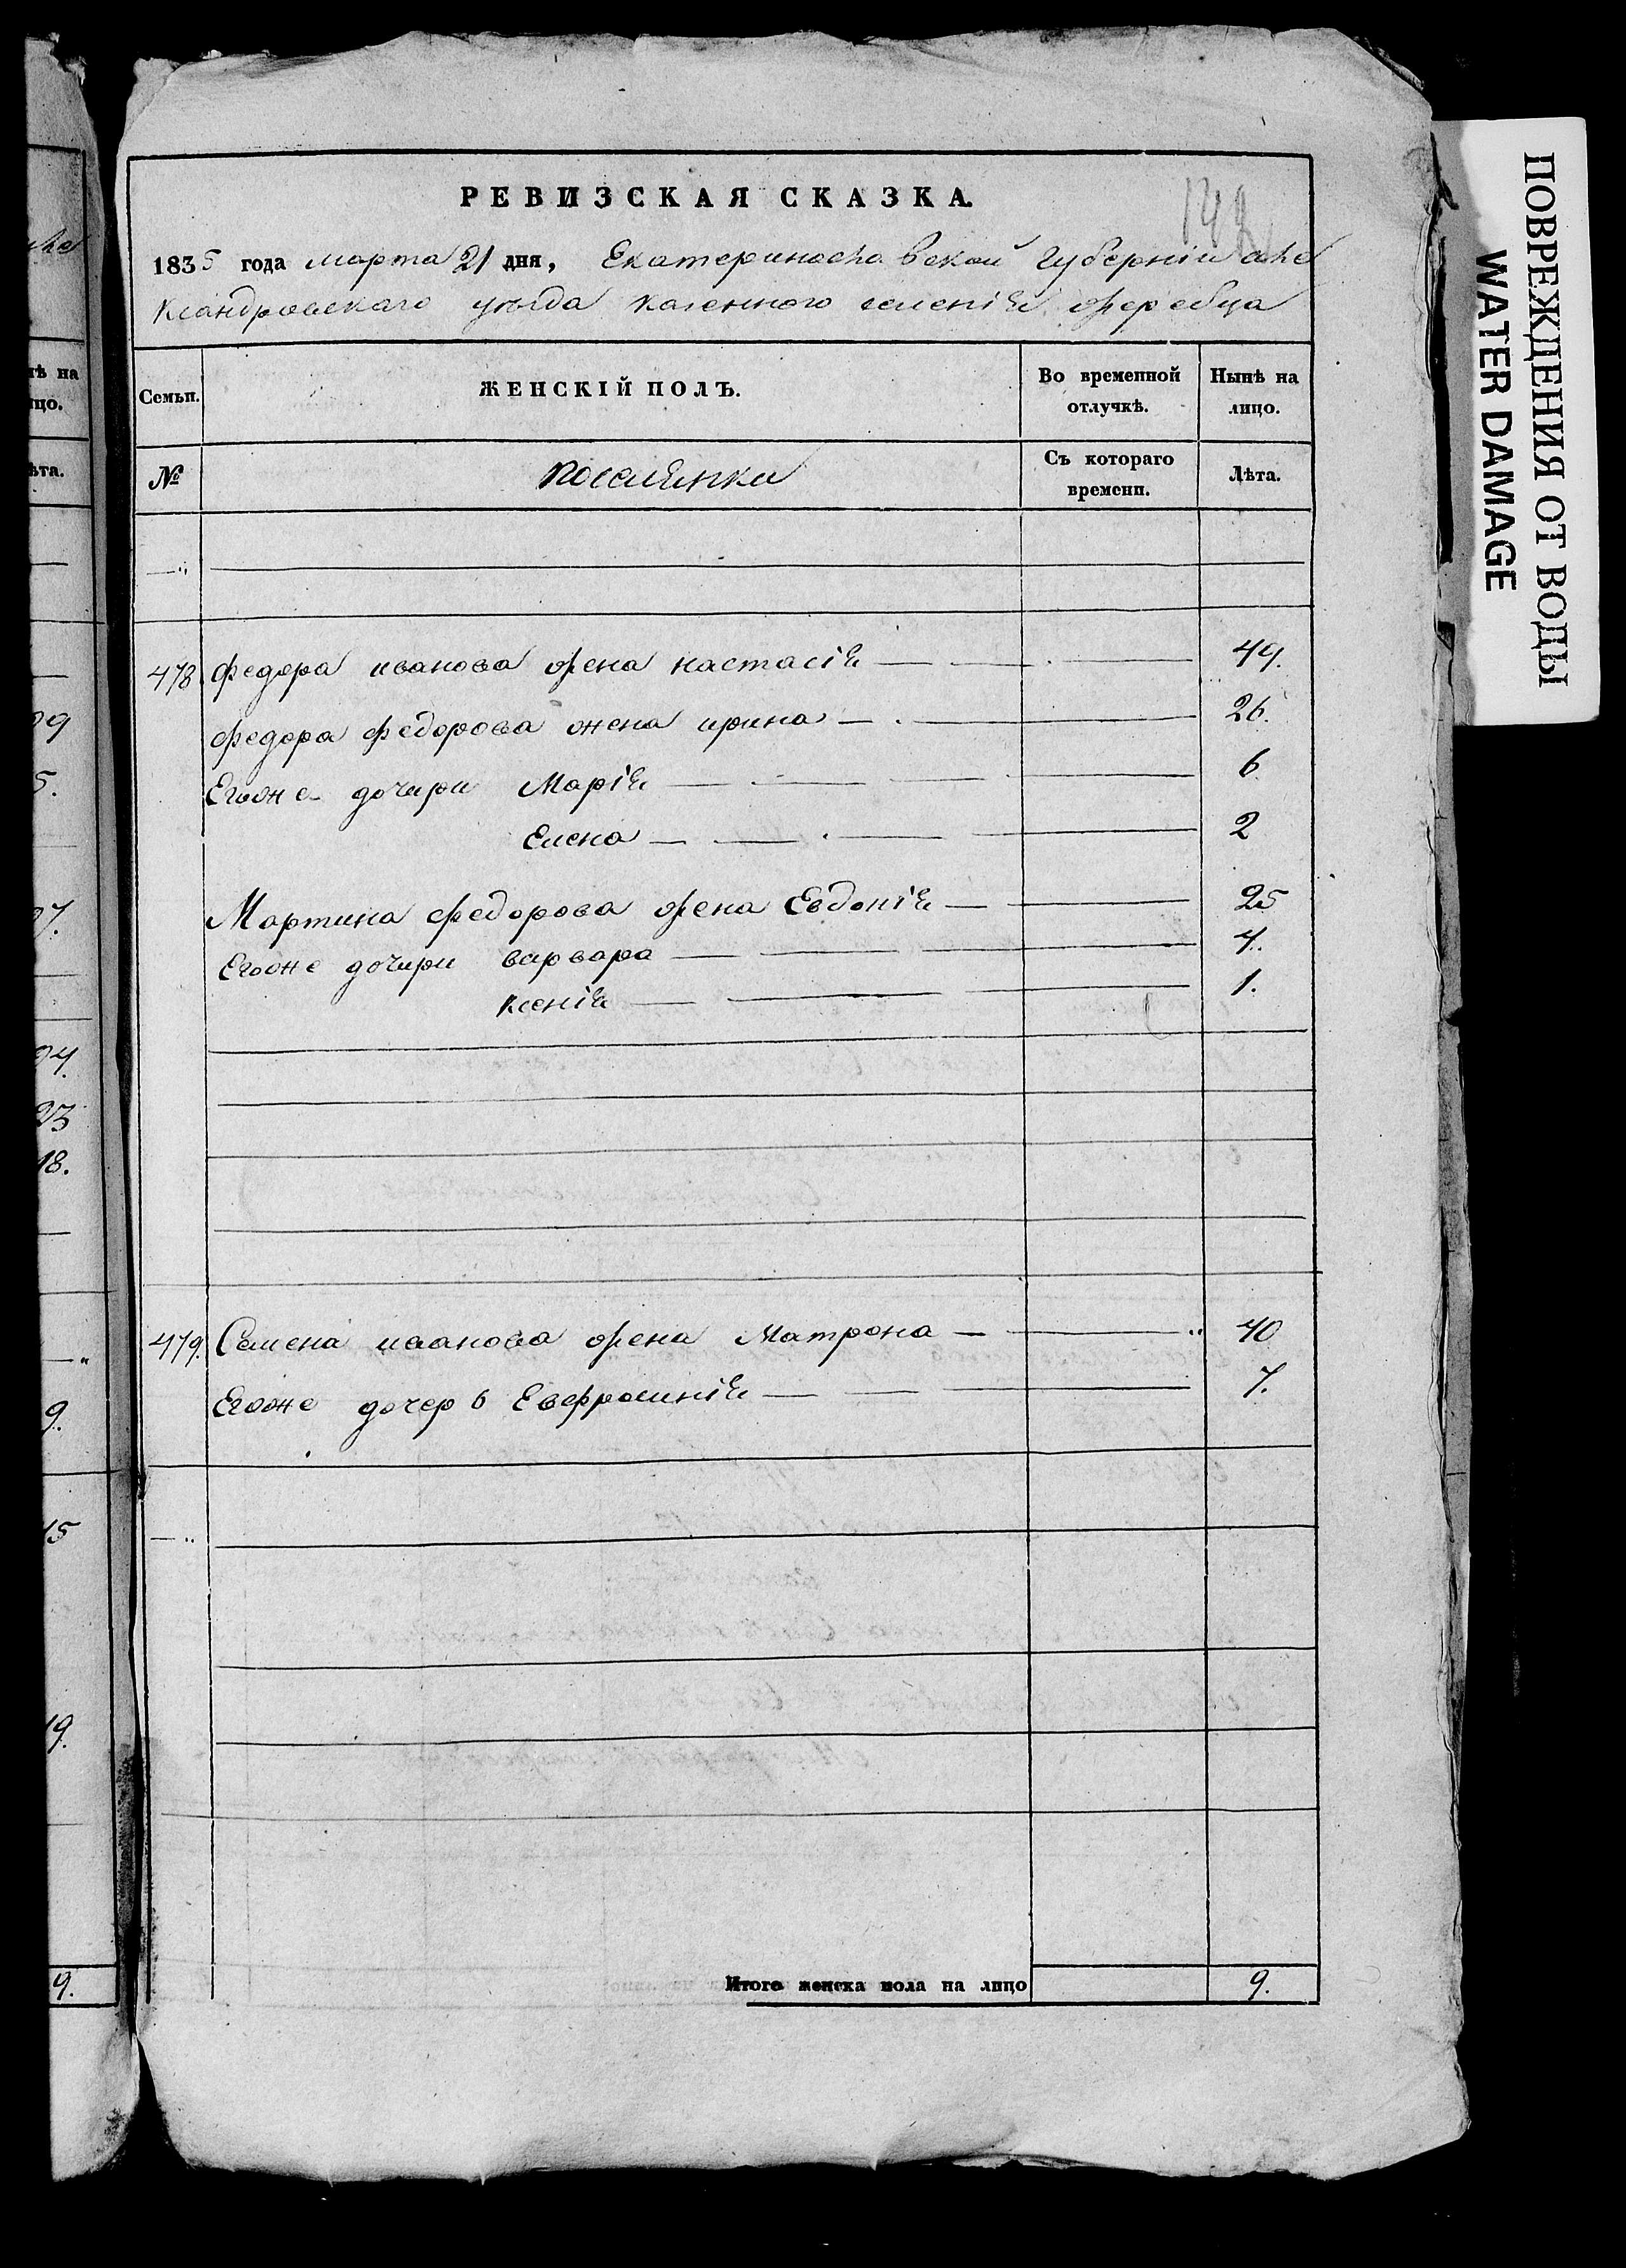 РЕВИЗСКАЯ СКАЗКА.
1835 года марта 21 дня, Екатеринославской Губерніи але
ксандровскаго уѣзда казенного селенія жеребца
Семьи.
ЖЕНСКІЙ ПОЛЪ.
Во временной отлучкѣ.
Нынѣ на лицо.
№
поселянки
Съ котораго времени.
Лѣта.
478 федора иванова жена настасія 49.
федора федорова жена ирина 26.
Егоже дочери Марія 6
Елена 2
Мартина федорова жена Евдокія 25
Егоже дочери варвара 4.
ксенія 1.
479. Семена иванова жена Матрона 40
Егоже дочерь Евфросинія 7.
Итого женска пола на лицо 9.
ПОВРЕЖДЕНИЯ ОТ ВОДЫ
WATER DAMAGE